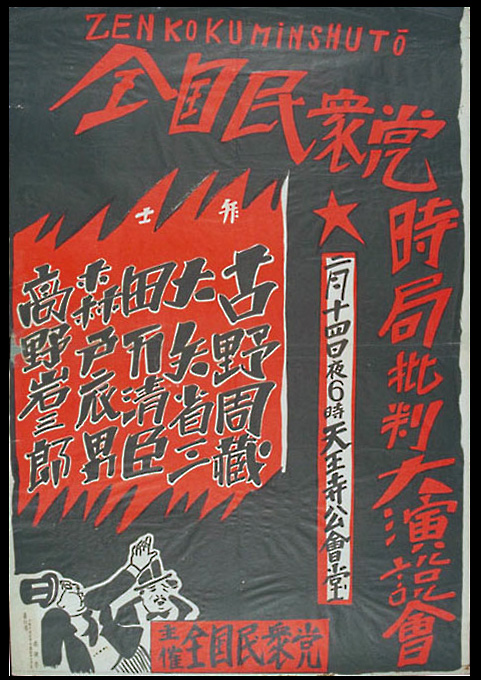 ZENKOKUMINSHUTŌ
全国民衆党
時局批判大演説會
二月十四日夜6時天王寺公會堂
弁士
古野周藏
大矢省三
田万清臣
森戸辰男
高野岩三郎
主催全国民衆党